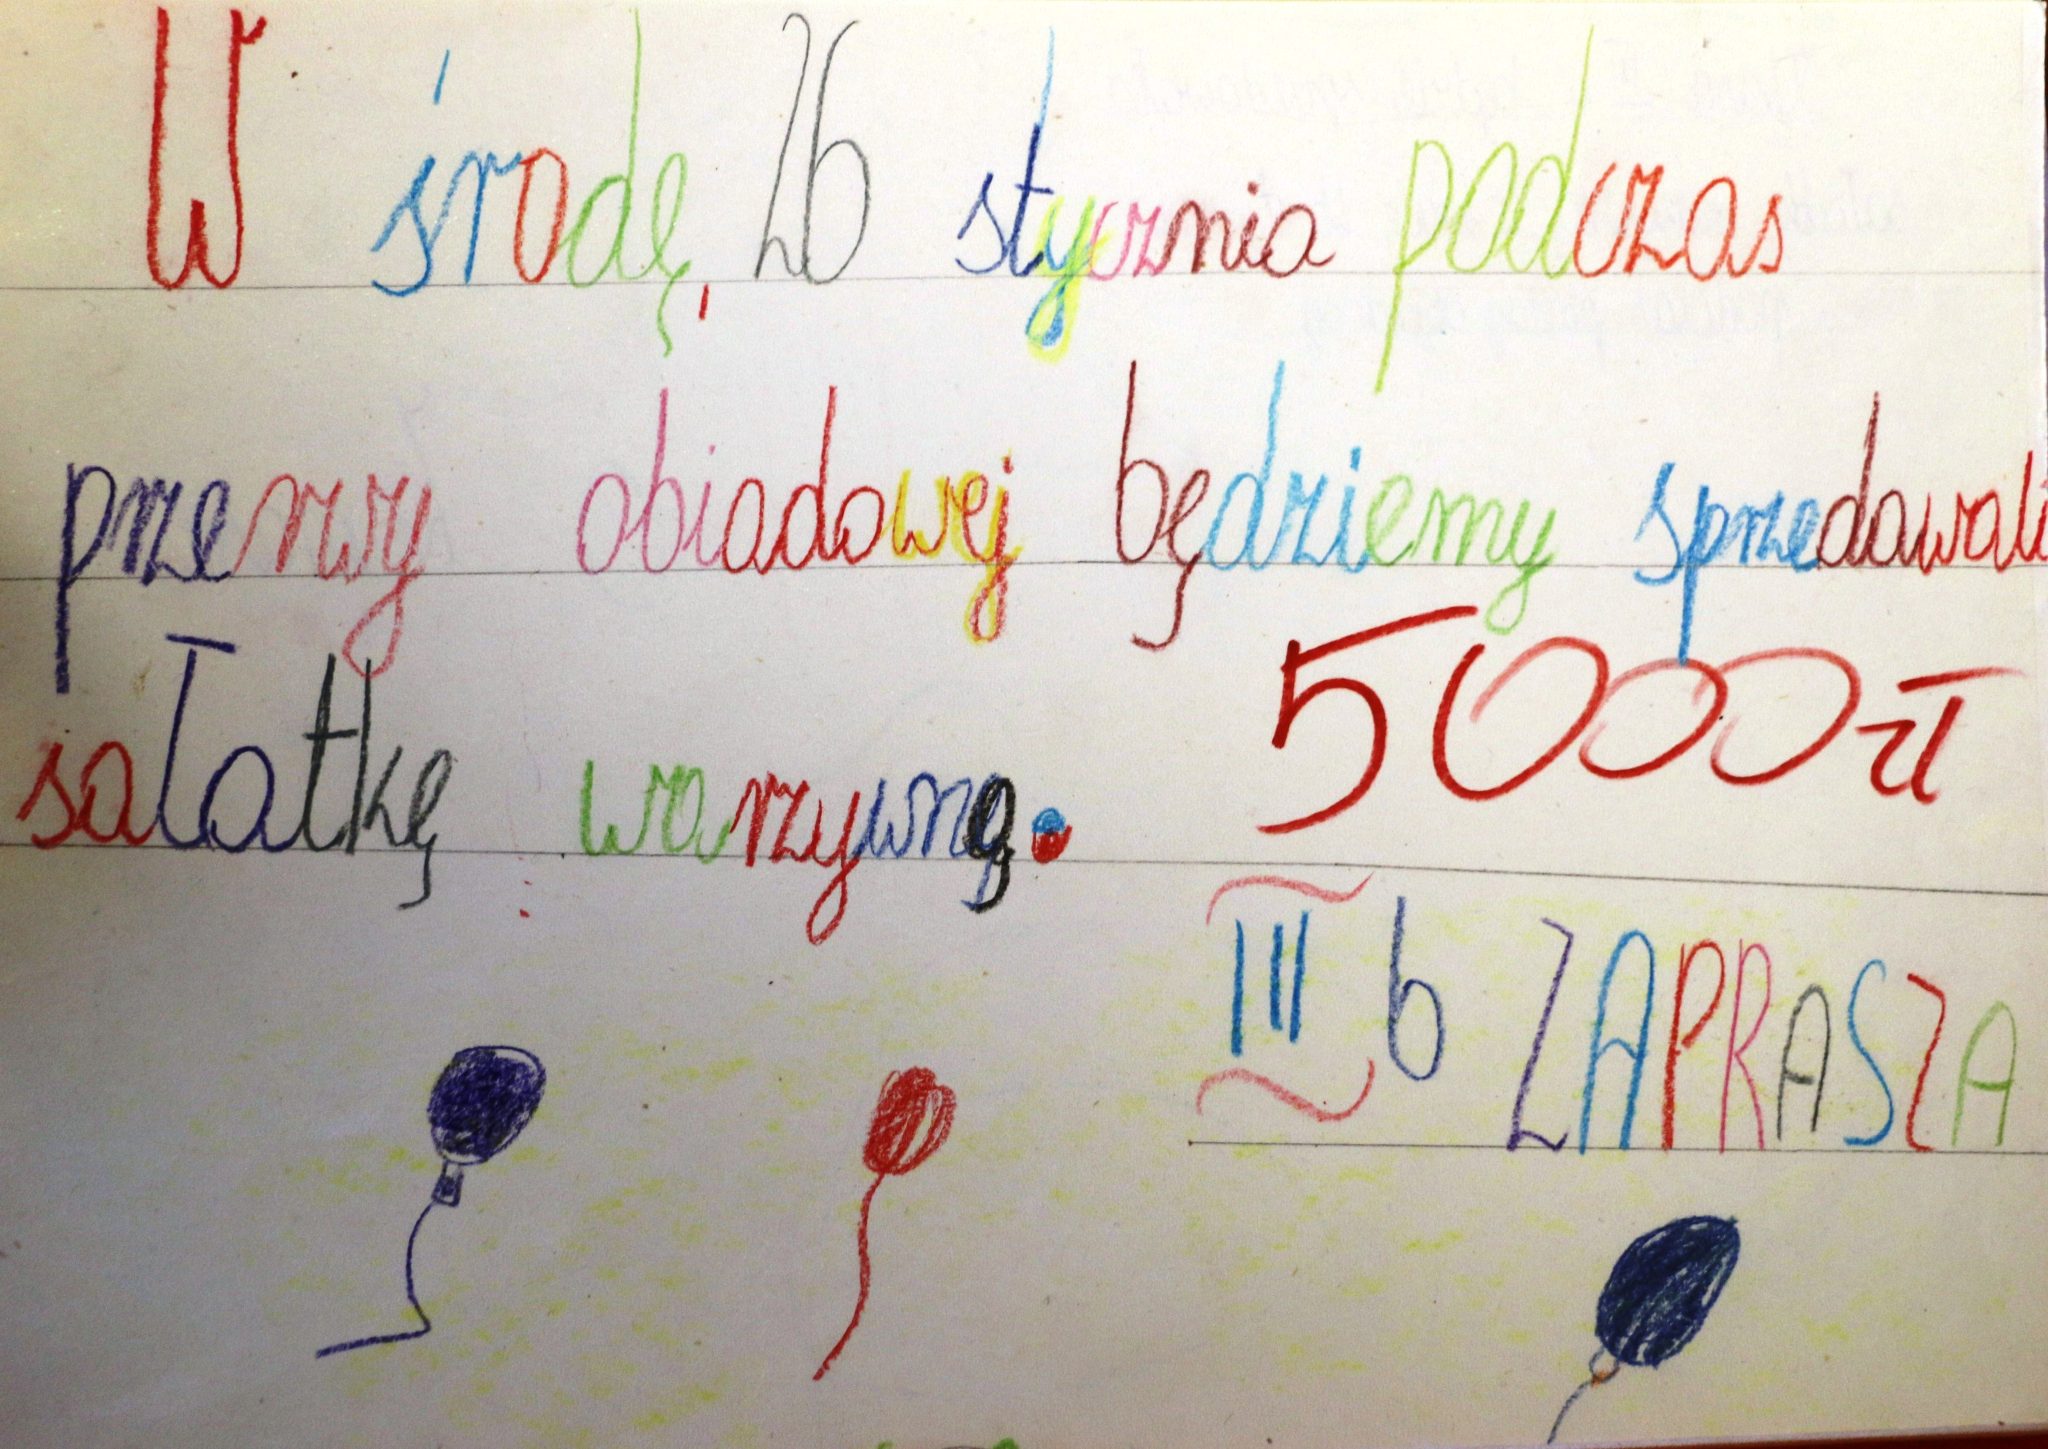 W środę, 26 stycznia podczas
przerwy obiadowej będziemy sprzedawali
sałatkę warzywną.
5000 zł
III b ZAPRASZA